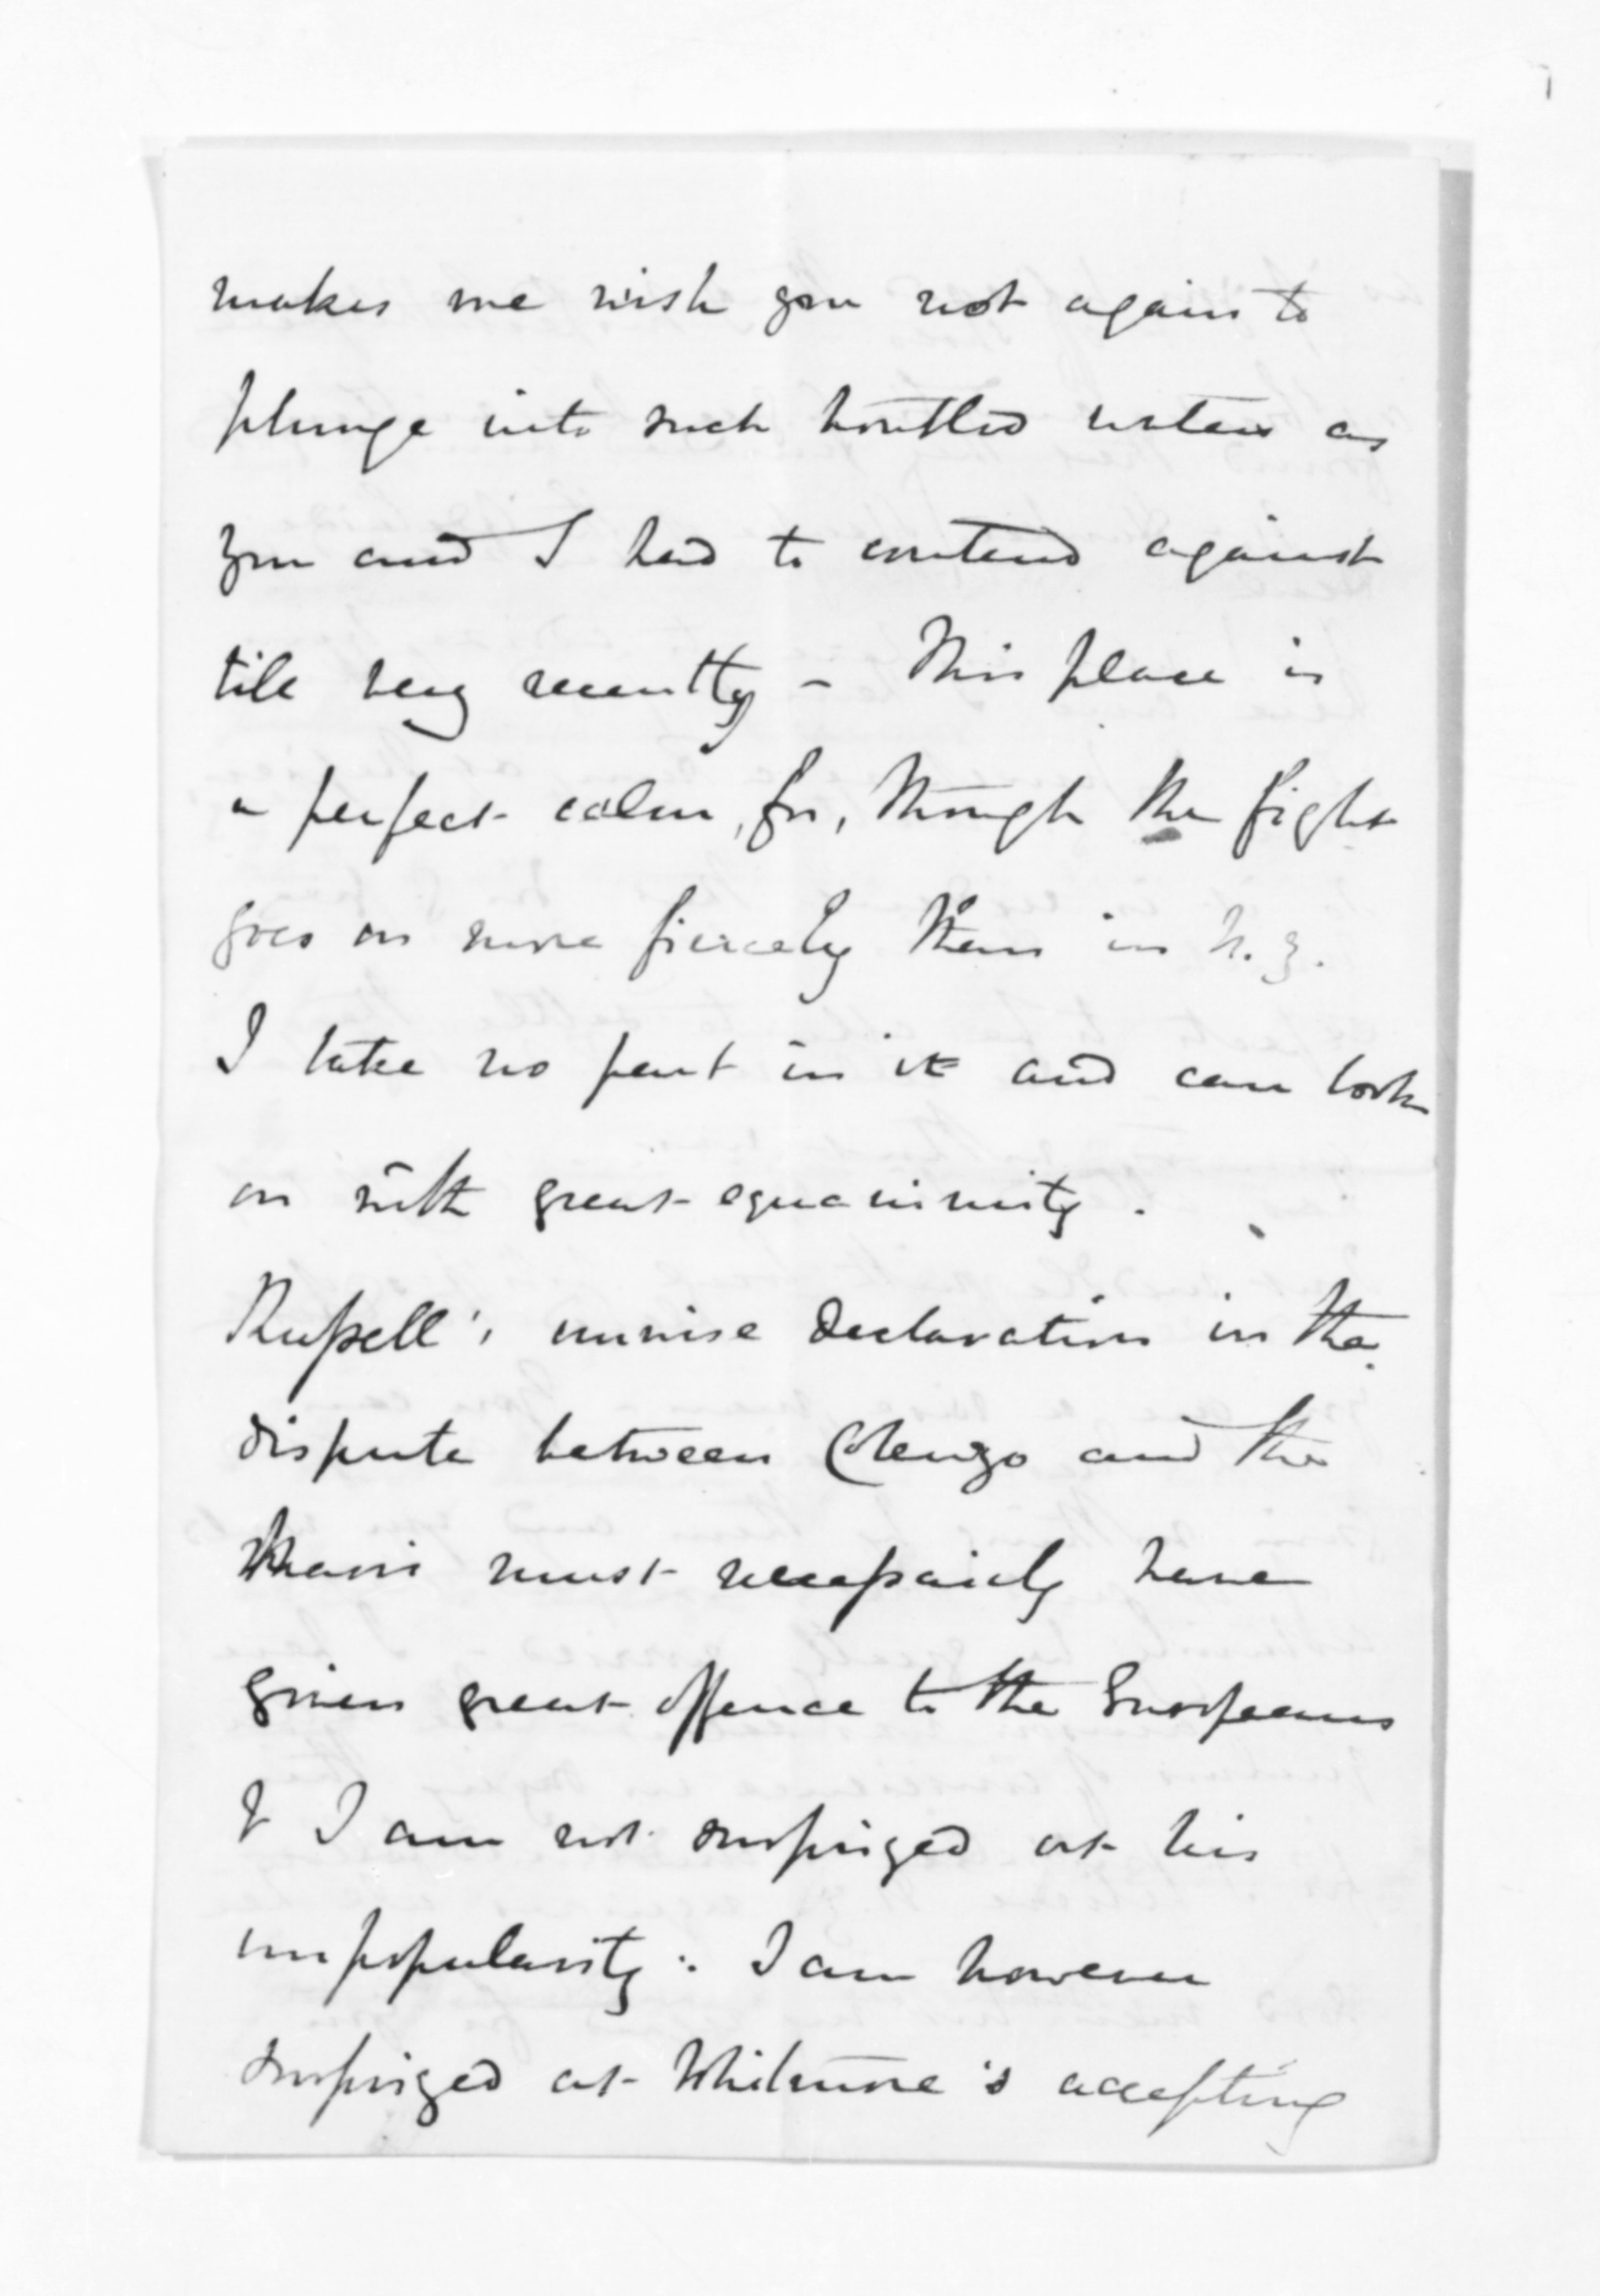 makes me wish you not again to
plunge into such troubled waters as
you and I had to contend against
till very recently – This place is
a perfect calm, for, though the fight
goes on more fiercely than in N. Z.
I take no part in it and can look
on with great equanimity.
Russell's unwise declaration in the
dispute between Colenzo and the
Maoris must necessarily have
given great offence to the Europeans
& I am not surprized at his
unpopularity. I am however
surprized at Whitmore's accepting